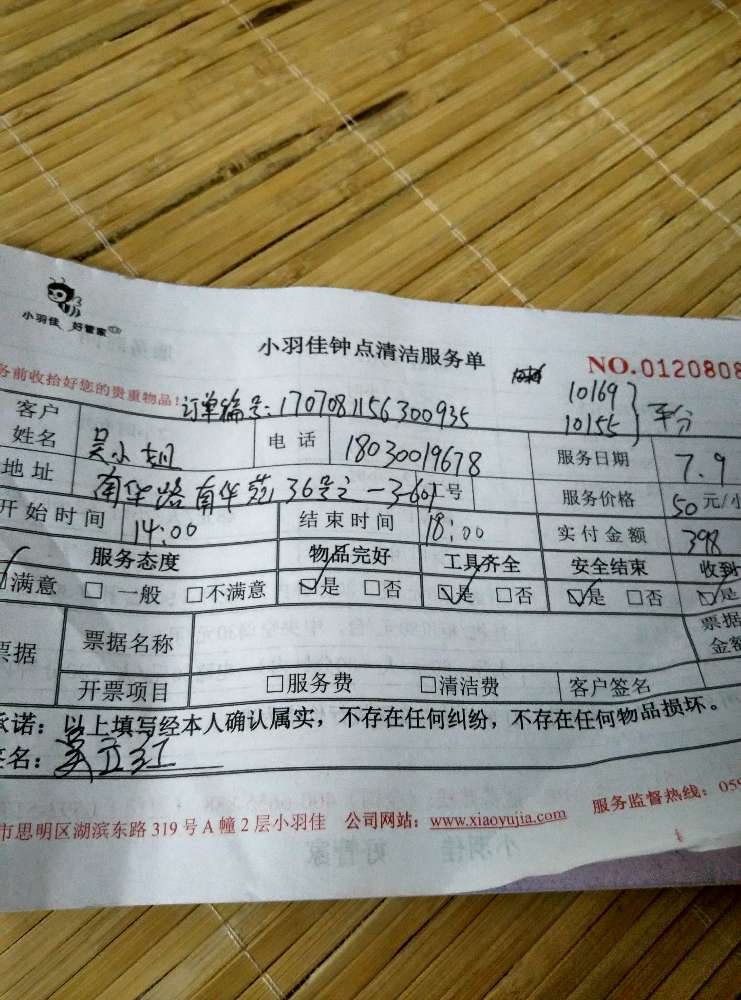 小羽佳 好管家
小羽佳钟点清洁服务单
NO.0120808
务前收拾好您的贵重物品!
订单编号:1707081156300935
10169
10155
平分
客户姓名 吴小姐 电话 18030019678 服务日期 7.9
地址 南华路南华苑36号之一3-601 工号 服务价格 50元/小
开始时间 14:00 结束时间 18:00 实付金额 398
服务态度 物品完好 工具齐全 安全结束 收到
满意 □一般 □不满意 □是 □否 □是 □否 □是 □否 □是
票据 票据名称 票据金额
开票项目 □服务费 □清洁费 客户签名
承诺:以上填写经本人确认属实,不存在任何纠纷,不存在任何物品损坏。
签名:吴立红
市思明区湖滨东路319号A幢2层小羽佳 公司网站:www.xiaoyujia.com 服务监督热线:059